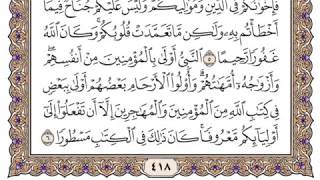 فَإِخْوَٰنُكُمْ فِى ٱلدِّينِ وَمَوَٰلِيكُمْ وَلَيْسَ عَلَيْكُمْ جُنَاحٌ فِيمَآ
أَخْطَأْتُم بِهِۦ وَلَٰكِن مَّا تَعَمَّدَتْ قُلُوبُكُمْ وَكَانَ ٱللَّهُ
غَفُورًا رَّحِيمًا ٥ ٱلنَّبِىُّ أَوْلَىٰ بِٱلْمُؤْمِنِينَ مِنْ أَنفُسِهِمْ
وَأَزْوَٰجُهُۥٓ أُمَّهَٰتُهُمْ وَأُو۟لُوا۟ ٱلْأَرْحَامِ بَعْضُهُمْ أَوْلَىٰ بِبَعْضٍ
فِى كِتَٰبِ ٱللَّهِ مِنَ ٱلْمُؤْمِنِينَ وَٱلْمُهَٰجِرِينَ إِلَّآ أَن تَفْعَلُوٓا۟ إِلَىٰٓ
أَوْلِيَآئِكُم مَّعْرُوفًا كَانَ ذَٰلِكَ فِى ٱلْكِتَٰبِ مَسْطُورًا ٦
٤١٨